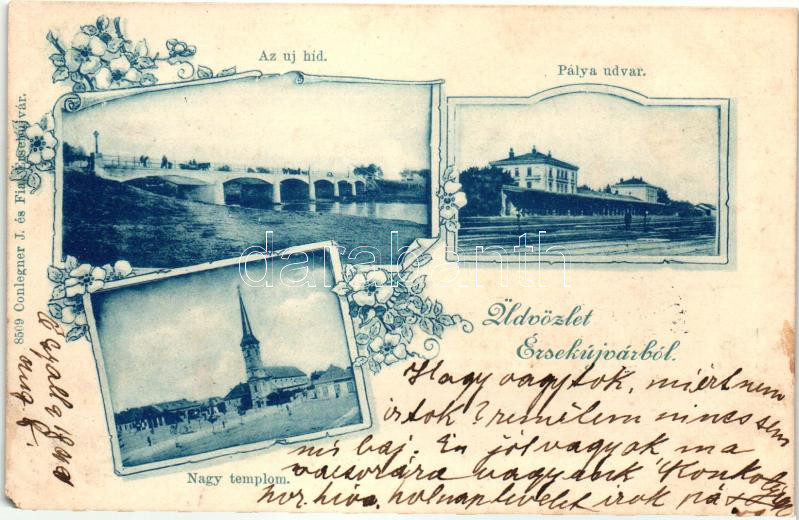 Az uj híd.
Pálya udvar.
8509 Conlegner J. és Fia, Érsekujvár.
darabanth
Üdvözlet
Érsekújvárból.
Nagy templom.
Hogy vagytok, miért nem
irtok? remélem nincs sem
mi baj. Én jól vagyok, ma
vacsorára vagyunk
hiva, holnap levelet irok